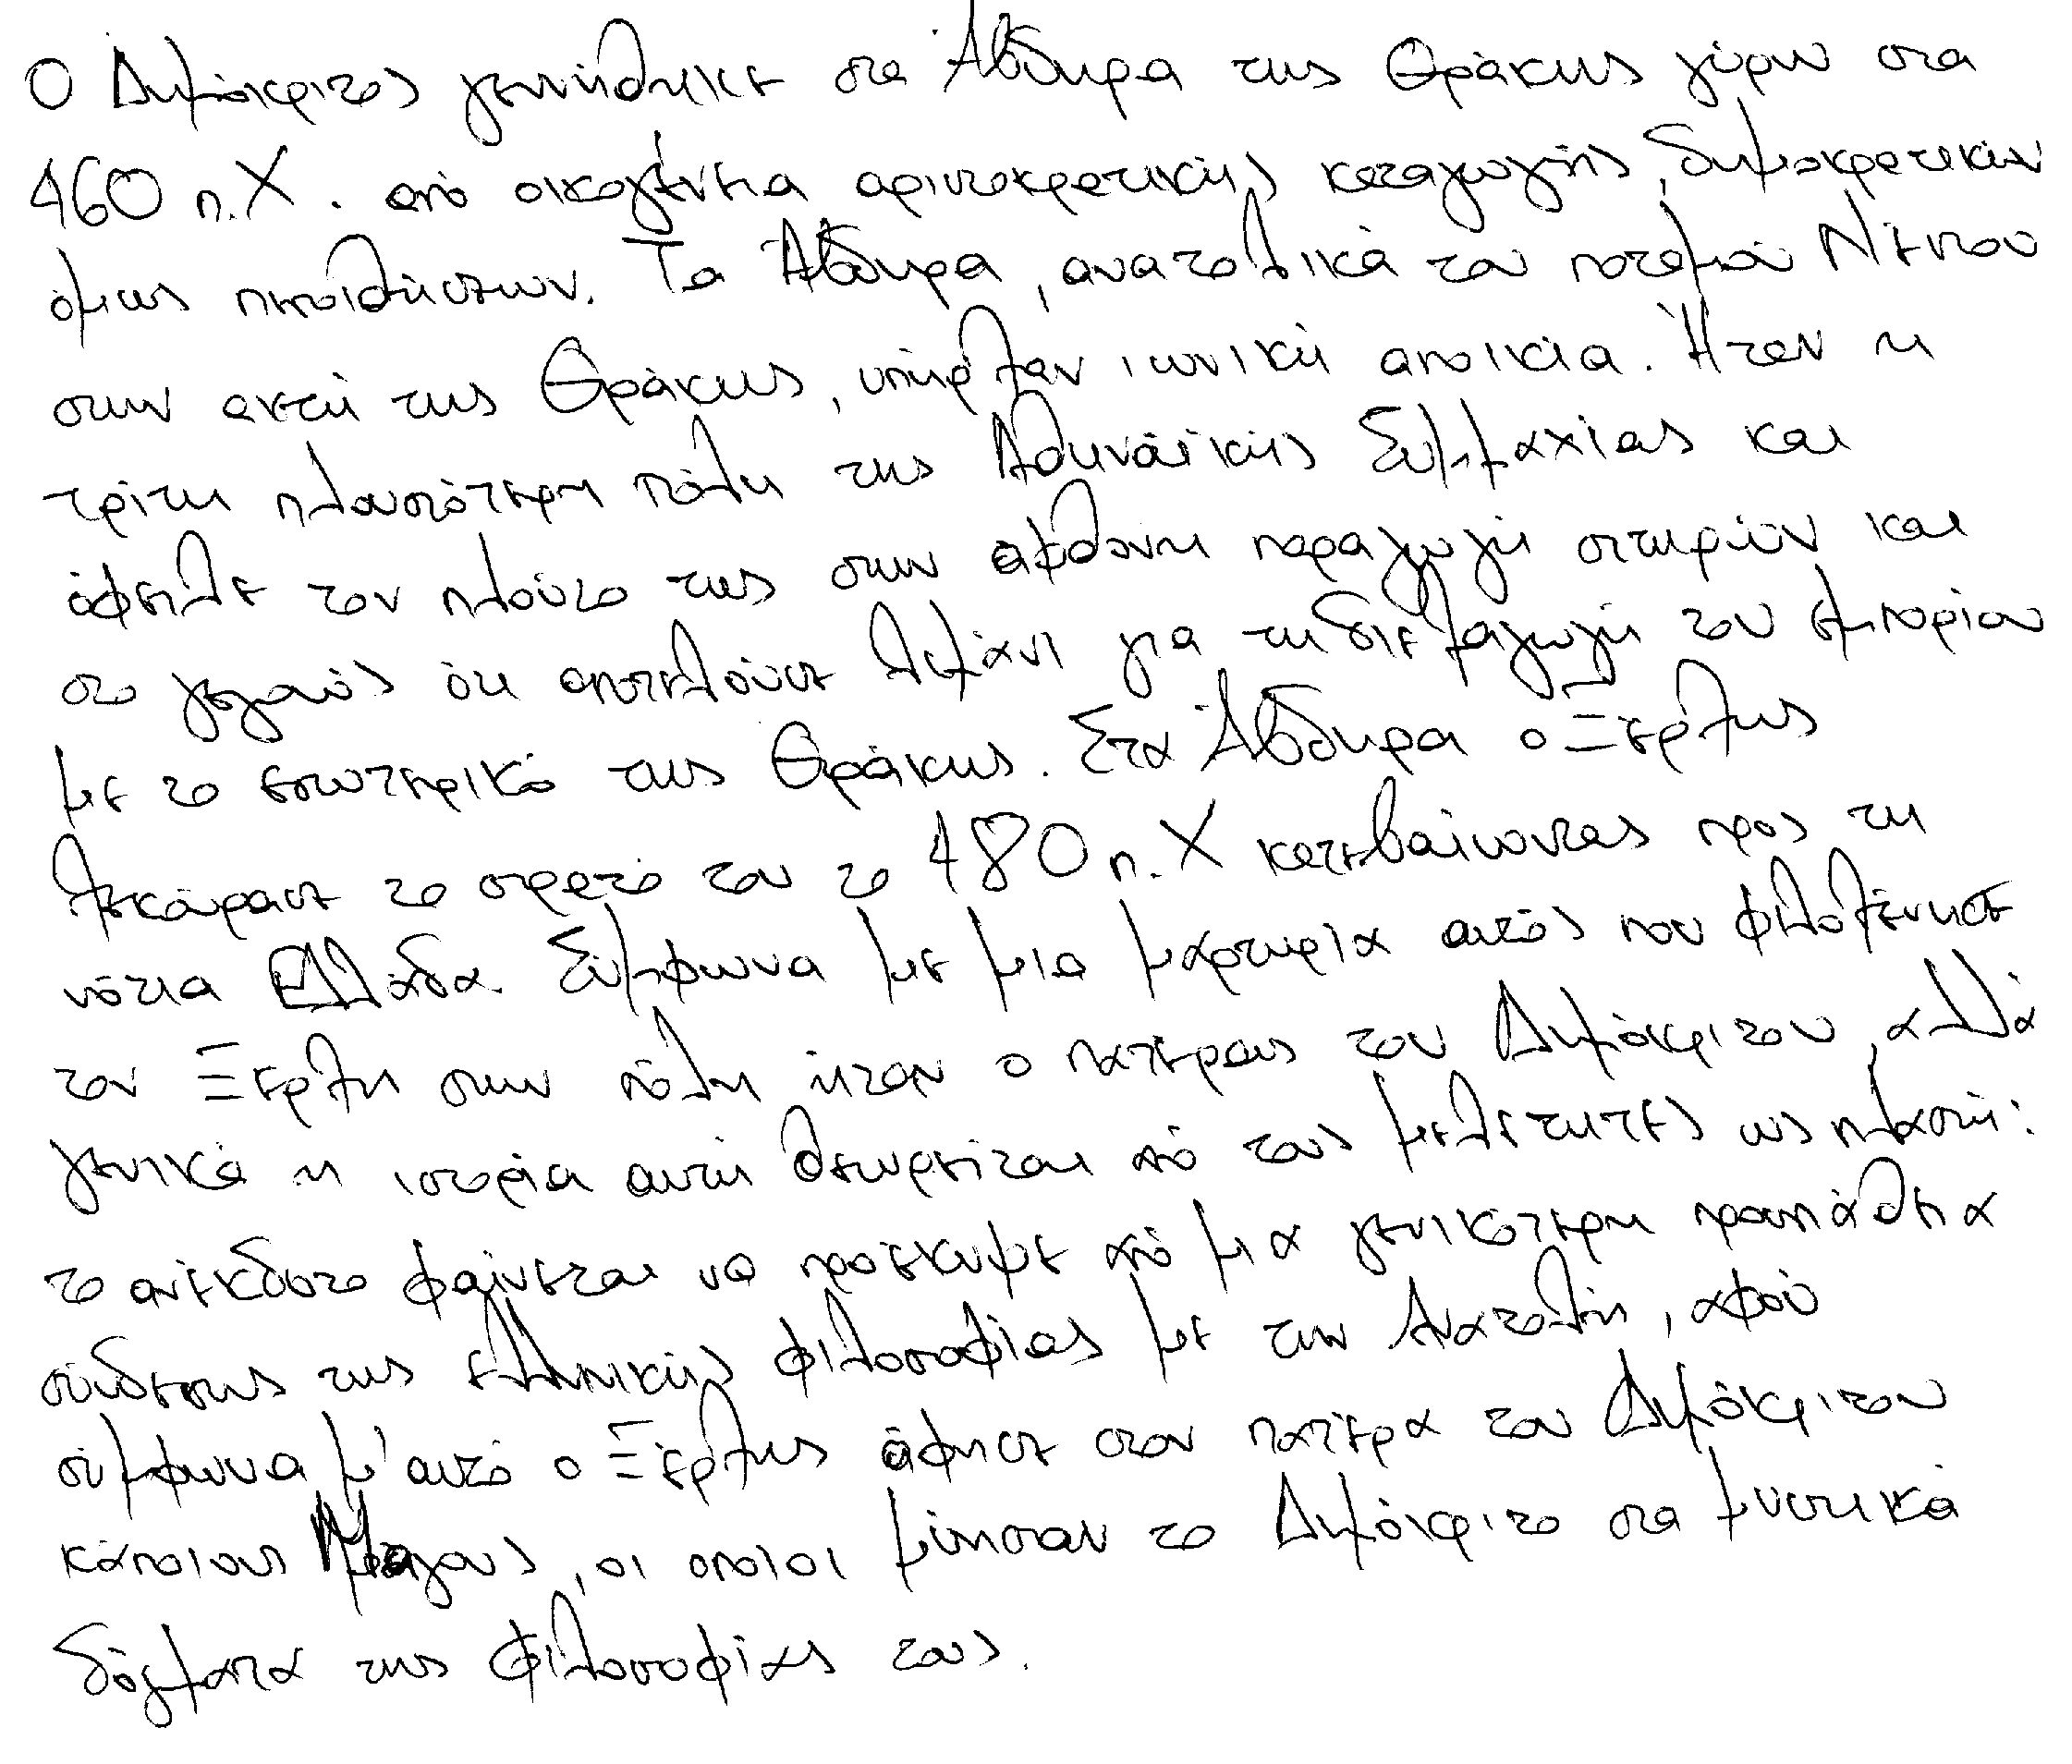 Ο Δημόκριτος γεννήθηκε στα Άβδηρα της Θράκης γύρω στα
460 π.Χ. από οικογένεια αριστοκρατικής καταγωγής, δημοκρατικών
όμως πεποιθήσεων. Τα Άβδηρα, ανατολικά του ποταμού Νέστου
στην ακτή της Θράκης, υπήρξαν ιωνική αποικία. Ήταν η
τρίτη πλουσιότερη πόλη της Αθηναϊκής Συμμαχίας και
όφειλε τον πλούτο της στην άφθονη παραγωγή σιτηρών και
στο γεγονός ότι αποτελούσε λιμάνι για τη διεξαγωγή του εμπορίου
με το εσωτερικό της Θράκης. Στα Άβδηρα ο Ξέρξης
ξεκούρασε το στρατό του το 480 π.Χ κατεβαίνοντας προς τη
νότια Ελλάδα. Σύμφωνα με μια μαρτυρία αυτός που φιλοξένησε
τον Ξέρξη στην πόλη ήταν ο πατέρας του Δημόκριτου, αλλά
γενικά η ιστορία αυτή θεωρείται από τους μελετητές ως πλαστή:
το ανέκδοτο φαίνεται να προέκυψε από μια γενικότερη προσπάθεια
σύνδεσης της ελληνικής φιλοσοφίας με την Ανατολή, αφού
σύμφωνα μ' αυτό ο Ξέρξης άφησε στον πατέρα του Δημόκριτου
κάποιους Μάγους, οι οποίοι μύησαν το Δημόκριτο στα μυστικά
δόγματα της φιλοσοφίας τους.